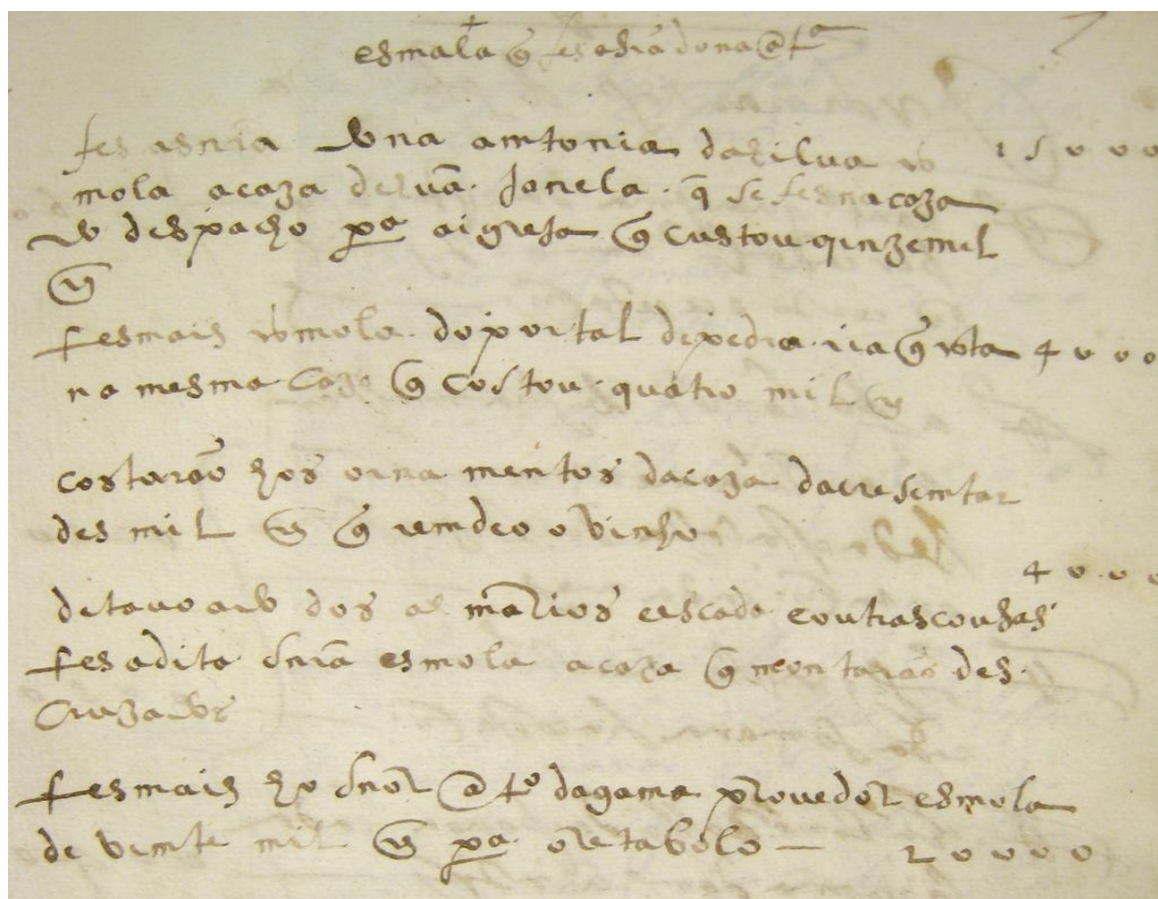 esmola q̃ fes asrã dona @ta
fes asnra dona amtonia dasilua es 15000
mola acaza de huã Janela q̃ se fes na caza
do despacho pa aigreja q̃ custou qinzemil
rs
fesmais esmola do portal depedra q̃ esta 4000
na mesma Caza q̃ costou quatro mil rs
costarão hos orna mentos dacaza dacresemtar
des mil rs q̃ remdeo o vinho
4000
dos almarios eescada eoutrascouzas
fes adita snrã esmola acaza q̃ montarão des
Cruzados
fesmais ho snor @to dagama prouedor esmola
de vimte mil rs pa oretabolo — 20000